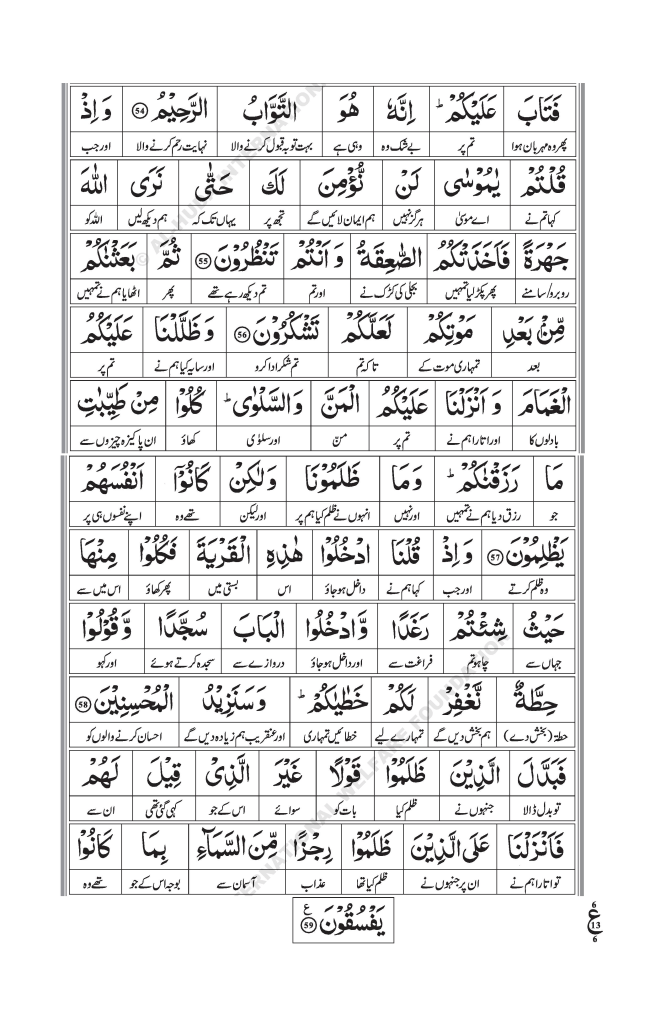 فَتَابَ عَلَيۡكُمۡ ؕ اِنَّهٗ هُوَ التَّوَّابُ الرَّحِيۡمُ ﴿54﴾ وَ اِذۡ
پھر وہ مہربان ہوا تم پر بے شک وہ وہی ہے بہت توبہ قبول کرنے والا نہایت رحم کرنے والا اور جب
قُلۡتُمۡ يٰمُوۡسٰى لَنۡ نُّؤۡمِنَ لَكَ حَتّٰى نَرَى اللّٰهَ
کہا تم نے اے موسیٰ ہرگز نہیں ہم ایمان لائیں گے تجھ پر یہاں تک کہ ہم دیکھ لیں اللہ کو
جَهۡرَةً فَاَخَذَتۡكُمُ الصّٰعِقَةُ وَ اَنۡتُمۡ تَنۡظُرُوۡنَ ﴿55﴾ ثُمَّ بَعَثۡنٰكُمۡ
روبرو/سامنے پھر پکڑ لیا تمہیں بجلی کی کڑک نے اور تم تم دیکھ رہے تھے پھر اٹھایا ہم نے تمہیں
مِّنۡۢ بَعۡدِ مَوۡتِكُمۡ لَعَلَّكُمۡ تَشۡكُرُوۡنَ ﴿56﴾ وَ ظَلَّلۡنَا عَلَيۡكُمُ
بعد تمہاری موت کے تاکہ تم تم شکر ادا کرو اور سایہ کیا ہم نے تم پر
الۡغَمَامَ وَ اَنۡزَلۡنَا عَلَيۡكُمُ الۡمَنَّ وَ السَّلۡوٰى ؕ كُلُوۡا مِنۡ طَيِّبٰتِ
بادلوں کا اور اتارا ہم نے تم پر منّ اور سلویٰ کھاؤ ان پاکیزہ چیزوں سے
مَا رَزَقۡنٰكُمۡ ؕ وَ مَا ظَلَمُوۡنَا وَ لٰكِنۡ كَانُوۡٓا اَنۡفُسَهُمۡ
جو رزق دیا ہم نے تمہیں اور نہیں انہوں نے ظلم کیا ہم پر اور لیکن تھے وہ اپنے نفسوں ہی پر
يَظۡلِمُوۡنَ ﴿57﴾ وَ اِذۡ قُلۡنَا ادۡخُلُوۡا هٰذِهِ الۡقَرۡيَةَ فَكُلُوۡا مِنۡهَا
وہ ظلم کرتے اور جب کہا ہم نے داخل ہو جاؤ اس بستی میں پھر کھاؤ اس میں سے
حَيۡثُ شِئۡتُمۡ رَغَدًا وَّ ادۡخُلُوا الۡبَابَ سُجَّدًا وَّ قُوۡلُوۡا
جہاں سے چاہو تم فراغت سے اور داخل ہو جاؤ دروازے سے سجدہ کرتے ہوئے اور کہو
حِطَّةٌ نَّغۡفِرۡ لَكُمۡ خَطٰيٰكُمۡ ؕ وَ سَنَزِيۡدُ الۡمُحۡسِنِيۡنَ ﴿58﴾
حطۃ (بخش دے) ہم بخش دیں گے تمہارے لیے خطائیں تمہاری اور عنقریب ہم زیادہ دیں گے احسان کرنے والوں کو
فَبَدَّلَ الَّذِيۡنَ ظَلَمُوۡا قَوۡلًا غَيۡرَ الَّذِىۡ قِيۡلَ لَهُمۡ
تو بدل ڈالا جنہوں نے ظلم کیا بات کو سوائے اس کے جو کہی گئی تھی ان سے
فَاَنۡزَلۡنَا عَلَى الَّذِيۡنَ ظَلَمُوۡا رِجۡزًا مِّنَ السَّمَآءِ بِمَا كَانُوۡا
تو اتارا ہم نے ان پر جنہوں نے ظلم کیا تھا عذاب آسمان سے بوجہ اس کے جو تھے وہ
يَفۡسُقُوۡنَ ﴿59﴾ ع
6
ع 13
6